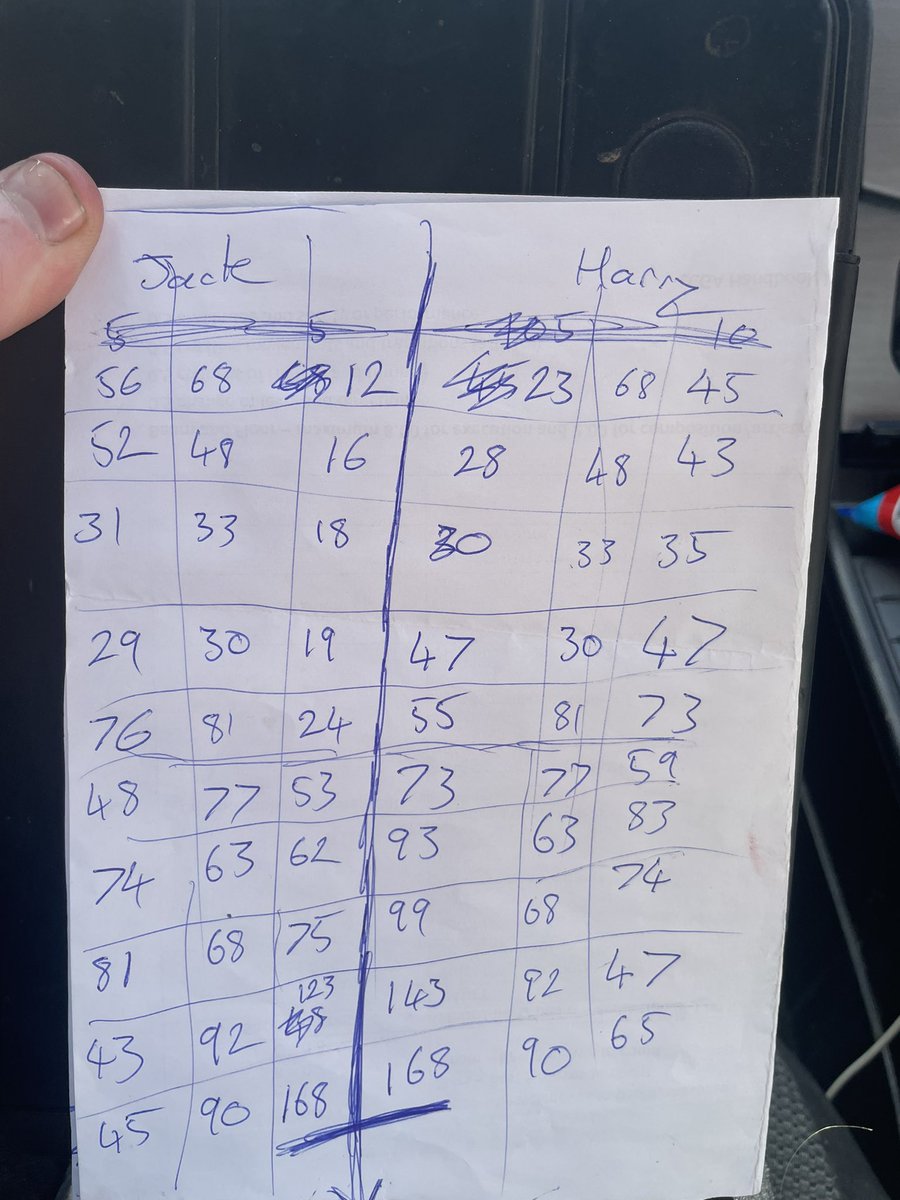 Jack Harry
5 5 5 10
56 68 12 23 68 45
52 48 16 28 48 43
31 33 18 30 33 35
29 30 19 47 30 47
76 81 24 55 81 73
48 77 53 73 77 59
74 63 62 93 63 83
81 68 75 99 68 74
43 92 123 143 92 47
45 90 168 168 90 65